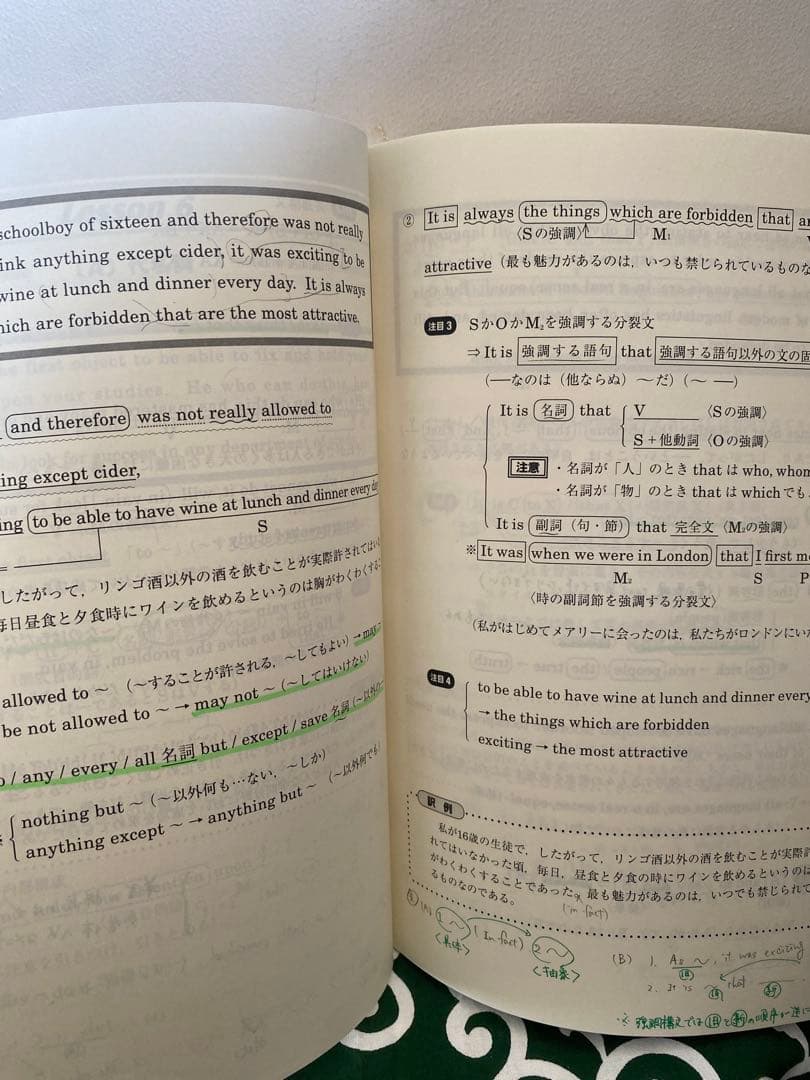 schoolboy of sixteen and therefore was not really
ink anything except cider, it was exciting to be
wine at lunch and dinner every day. It is always
ich are forbidden that are the most attractive.
and therefore was not really allowed to
ing except cider,
ing to be able to have wine at lunch and dinner every day
S
したがって，リンゴ酒以外の酒を飲むことが実際許されてはい
毎日昼食と夕食時にワインを飲めるというのは胸がわくわくする
allowed to ～ （～することが許される，～してもよい）→ may ～
be not allowed to ～ → may not ～（～してはいけない）
o / any / every / all 名詞 but / except / save 名詞（～以外の
※ nothing but ～（～以外何も…ない，～しか）
anything except ～ → anything but ～ （～以外何でも）
② It is always the things which are forbidden that ar
〈Sの強調〉 M₁
attractive（最も魅力があるのは，いつも禁じられているものな
注目3 SかOかM₂を強調する分裂文
⇒ It is 強調する語句 that 強調する語句以外の文の固
（—なのは（他ならぬ）～だ）（～ —）
It is 名詞 that V 〈Sの強調〉
S＋他動詞〈Oの強調〉
注意 ・名詞が「人」のとき that は who, whom
・名詞が「物」のとき that は which でも，
It is 副詞（句・節） that 完全文〈M₂の強調〉
※ It was when we were in London that I first me
M₂ S P
〈時の副詞節を強調する分裂文〉
（私がはじめてメアリーに会ったのは，私たちがロンドンにい
注目4
to be able to have wine at lunch and dinner every
→ the things which are forbidden
exciting → the most attractive
訳例
私が16歳の生徒で，したがって，リンゴ酒以外の酒を飲むことが実際許
れてはいなかった頃，毎日，昼食と夕食の時にワインを飲めるというのは
がわくわくすることであった。最も魅力があるのは，いつでも禁じられて
るものなのである。
(in fact)
1 ～ (In fact) 2 ～
〈具体〉 〈抽象〉
(B) 1. As ～, it was exciting
旧
2. It is ～ that
旧 新
※ 強調構文では旧と新の順序が逆に